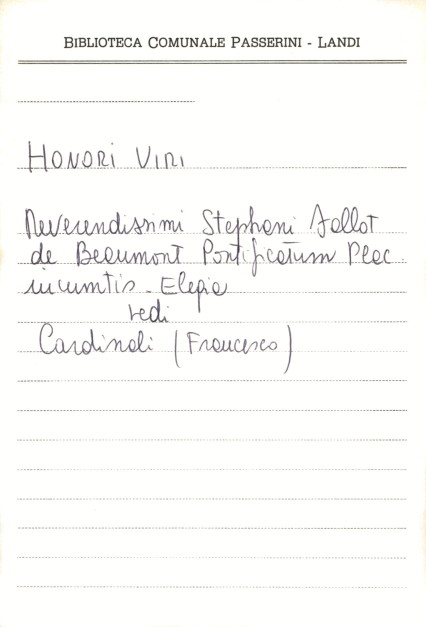 BIBLIOTECA COMUNALE PASSERINI - LANDI
HONORI VIRI
Reverendissimi Stephani Fallot
de Beaumont Pontificatum Plac.
ineuntis - Elegia
vedi
Cardinali (Francesco)